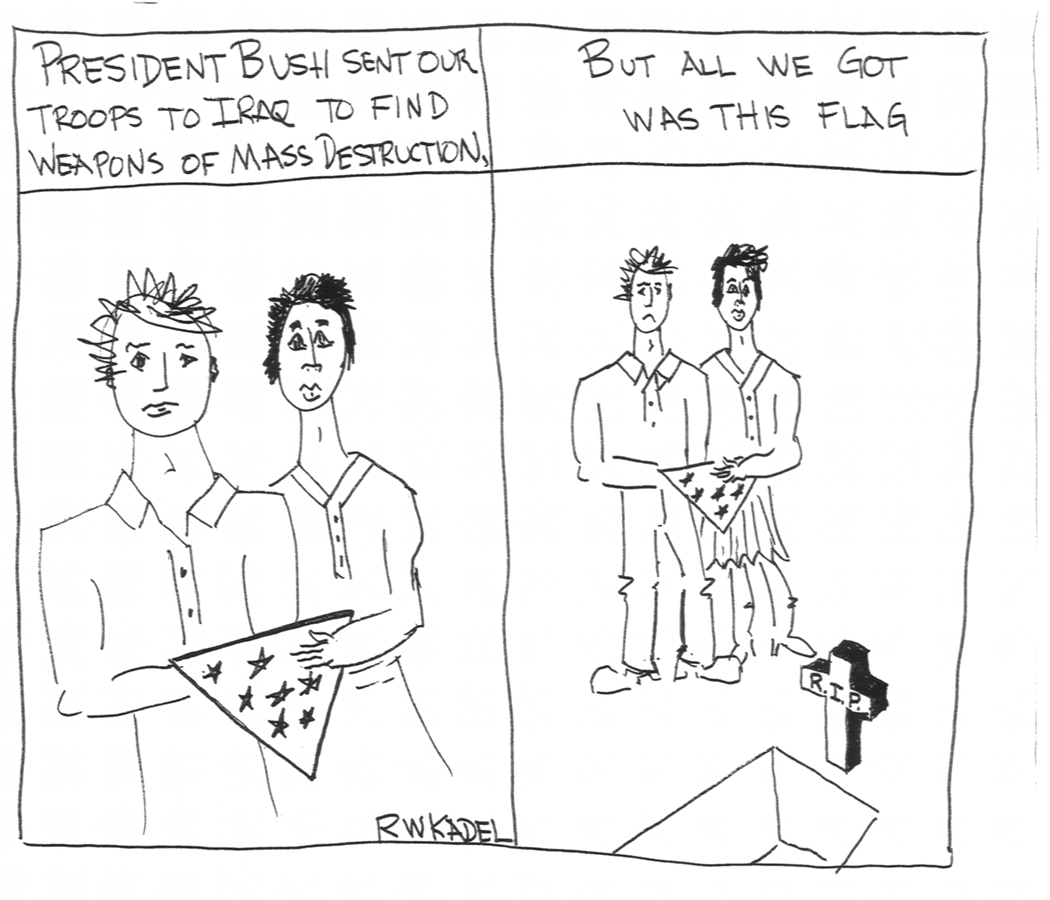 PRESIDENT BUSH SENT OUR
TROOPS TO IRAQ TO FIND
WEAPONS OF MASS DESTRUCTION,
BUT ALL WE GOT
WAS THIS FLAG
R.I.P.
RWKADEL